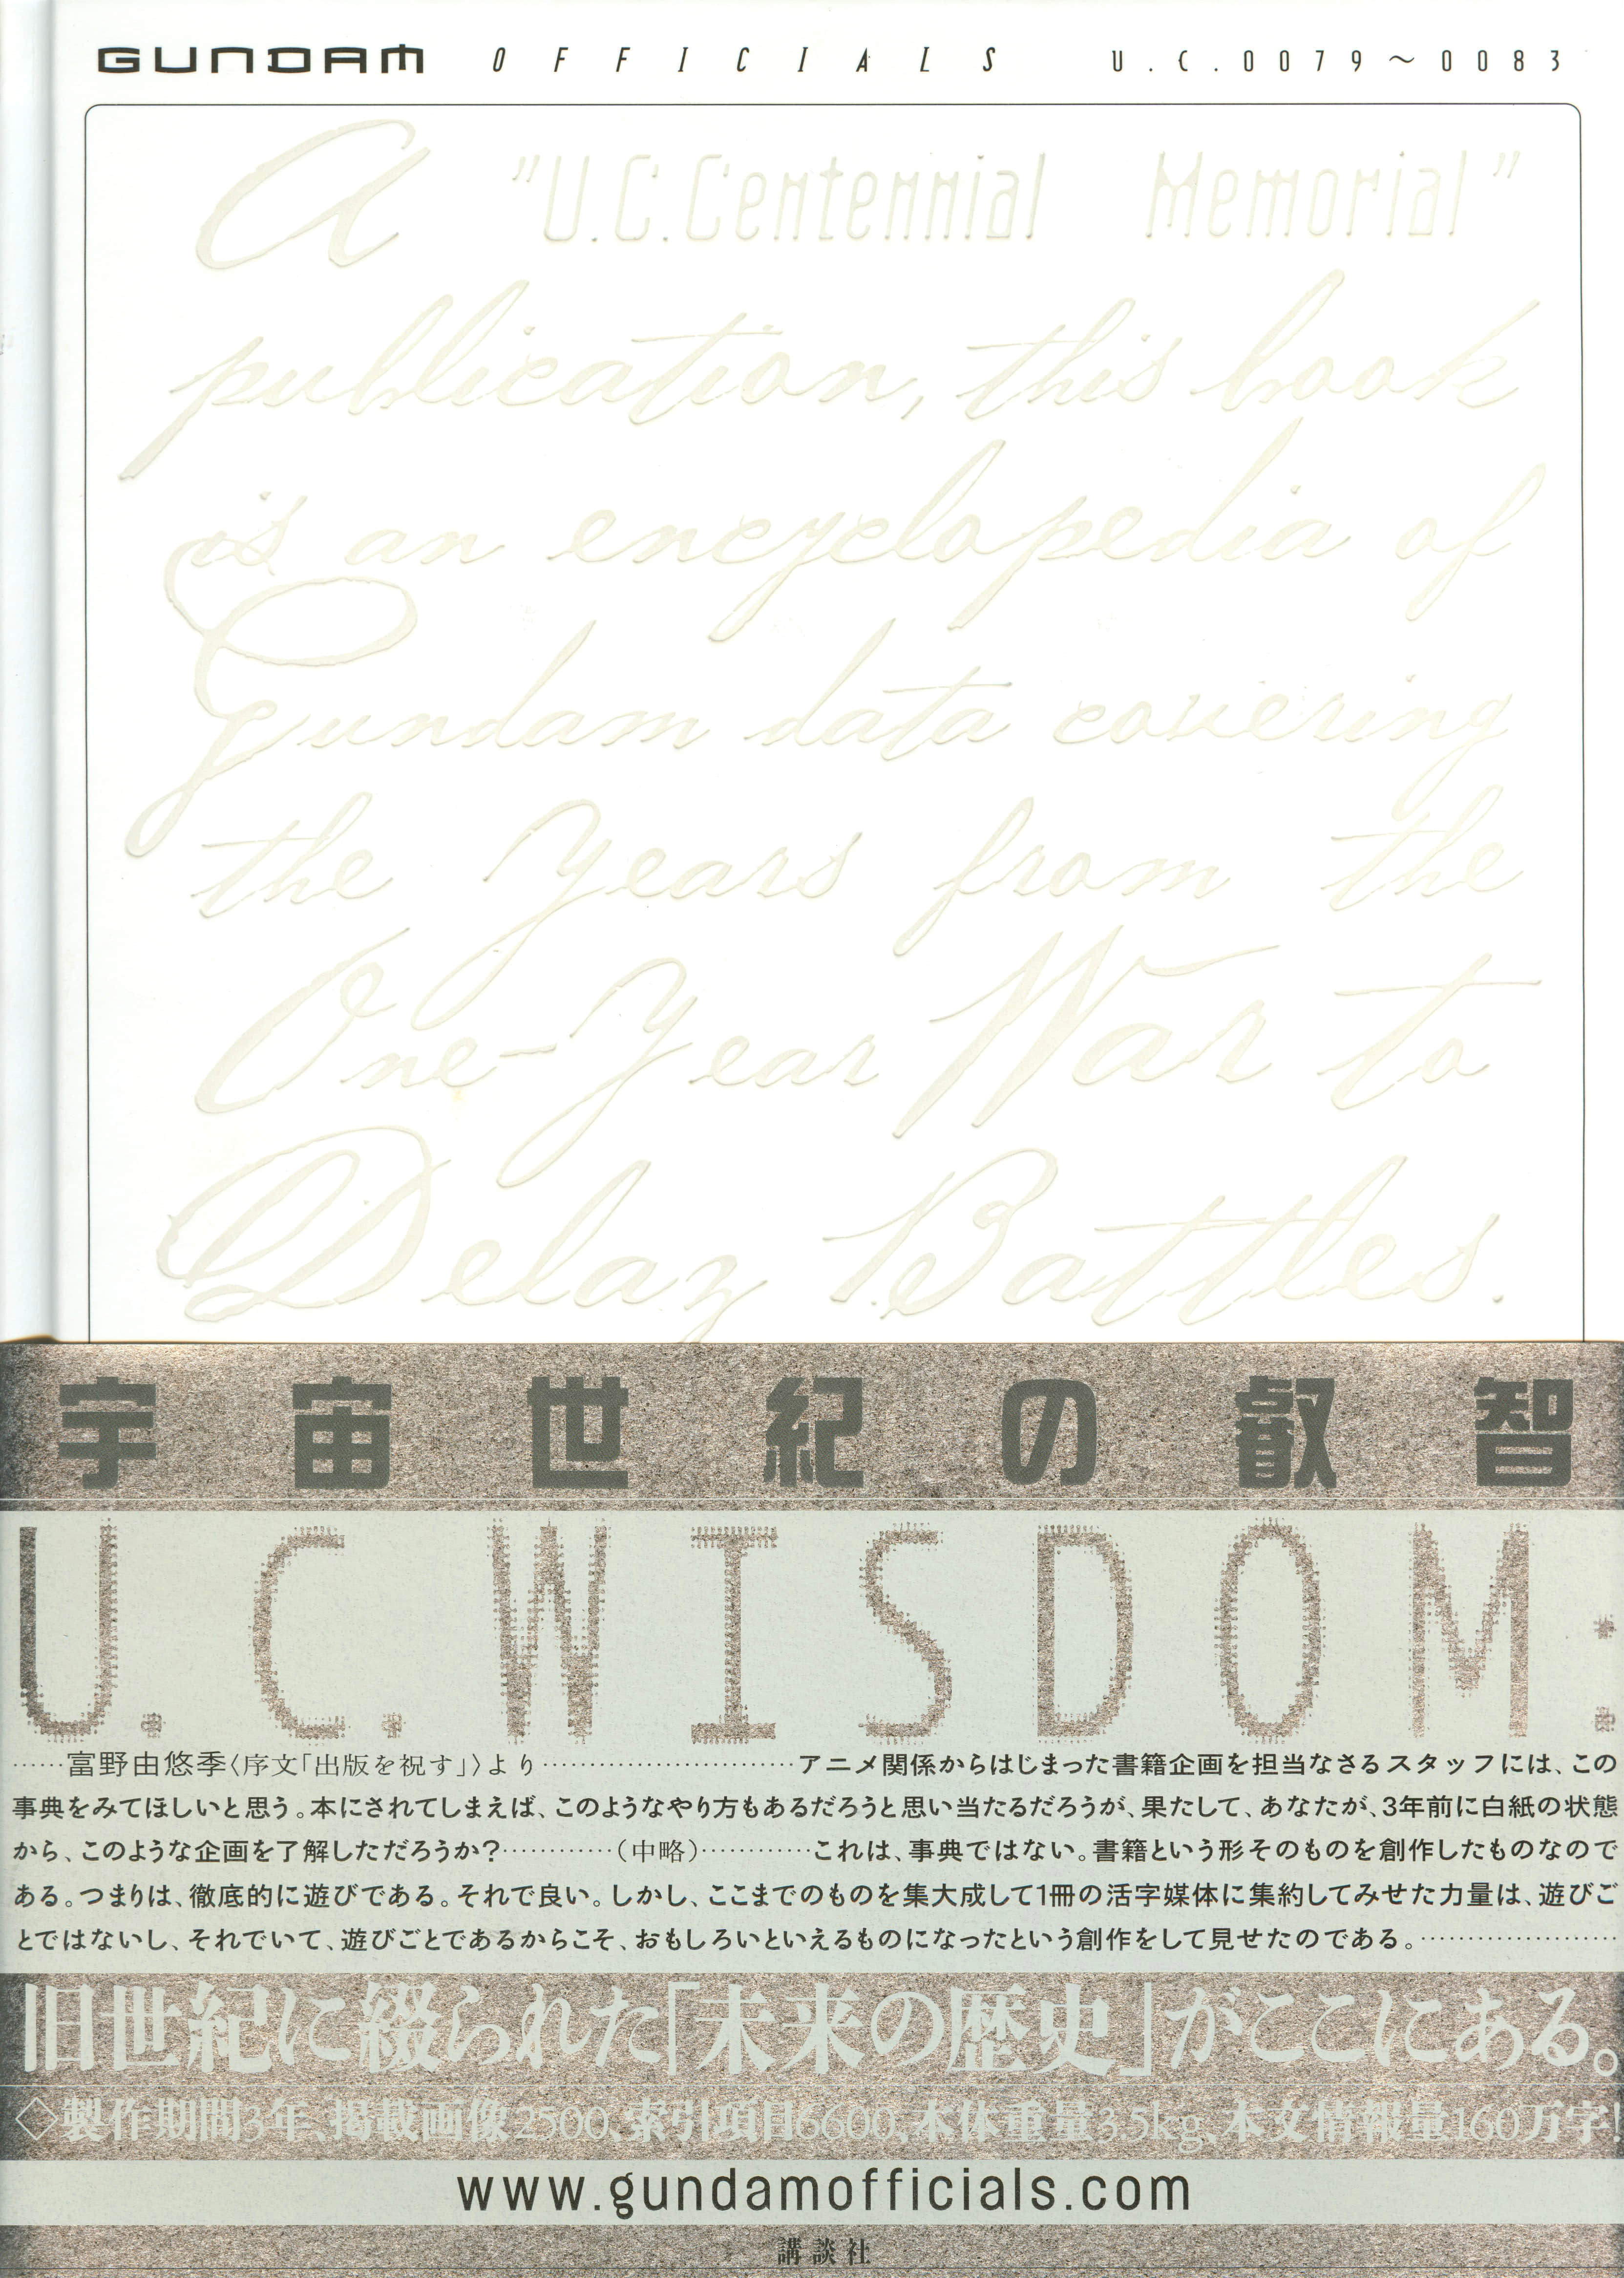 GUNDAM OFFICIALS U.C.0079～0083
A "U.C.Centennial Memorial"
publication, this book
is an encyclopedia of
Gundam data covering
the years from the
One-Year War to
Delaz Battles.
宇宙世紀の叡智
U.C.WISDOM:
……富野由悠季〈序文「出版を祝す」〉より………………………アニメ関係からはじまった書籍企画を担当なさるスタッフには、この
事典をみてほしいと思う。本にされてしまえば、このようなやり方もあるだろうと思い当たるだろうが、果たして、あなたが、3年前に白紙の状態
から、このような企画を了解しただろうか？…………（中略）…………これは、事典ではない。書籍という形そのものを創作したものなので
ある。つまりは、徹底的に遊びである。それで良い。しかし、ここまでのものを集大成して1冊の活字媒体に集約してみせた力量は、遊びご
とではないし、それでいて、遊びごとであるからこそ、おもしろいといえるものになったという創作をして見せたのである。…………………
旧世紀に綴られた「未来の歴史」がここにある。
◇製作期間3年、掲載画像2500、索引項目6600、本体重量3.5kg、本文情報量160万字!
www.gundamofficials.com
講談社